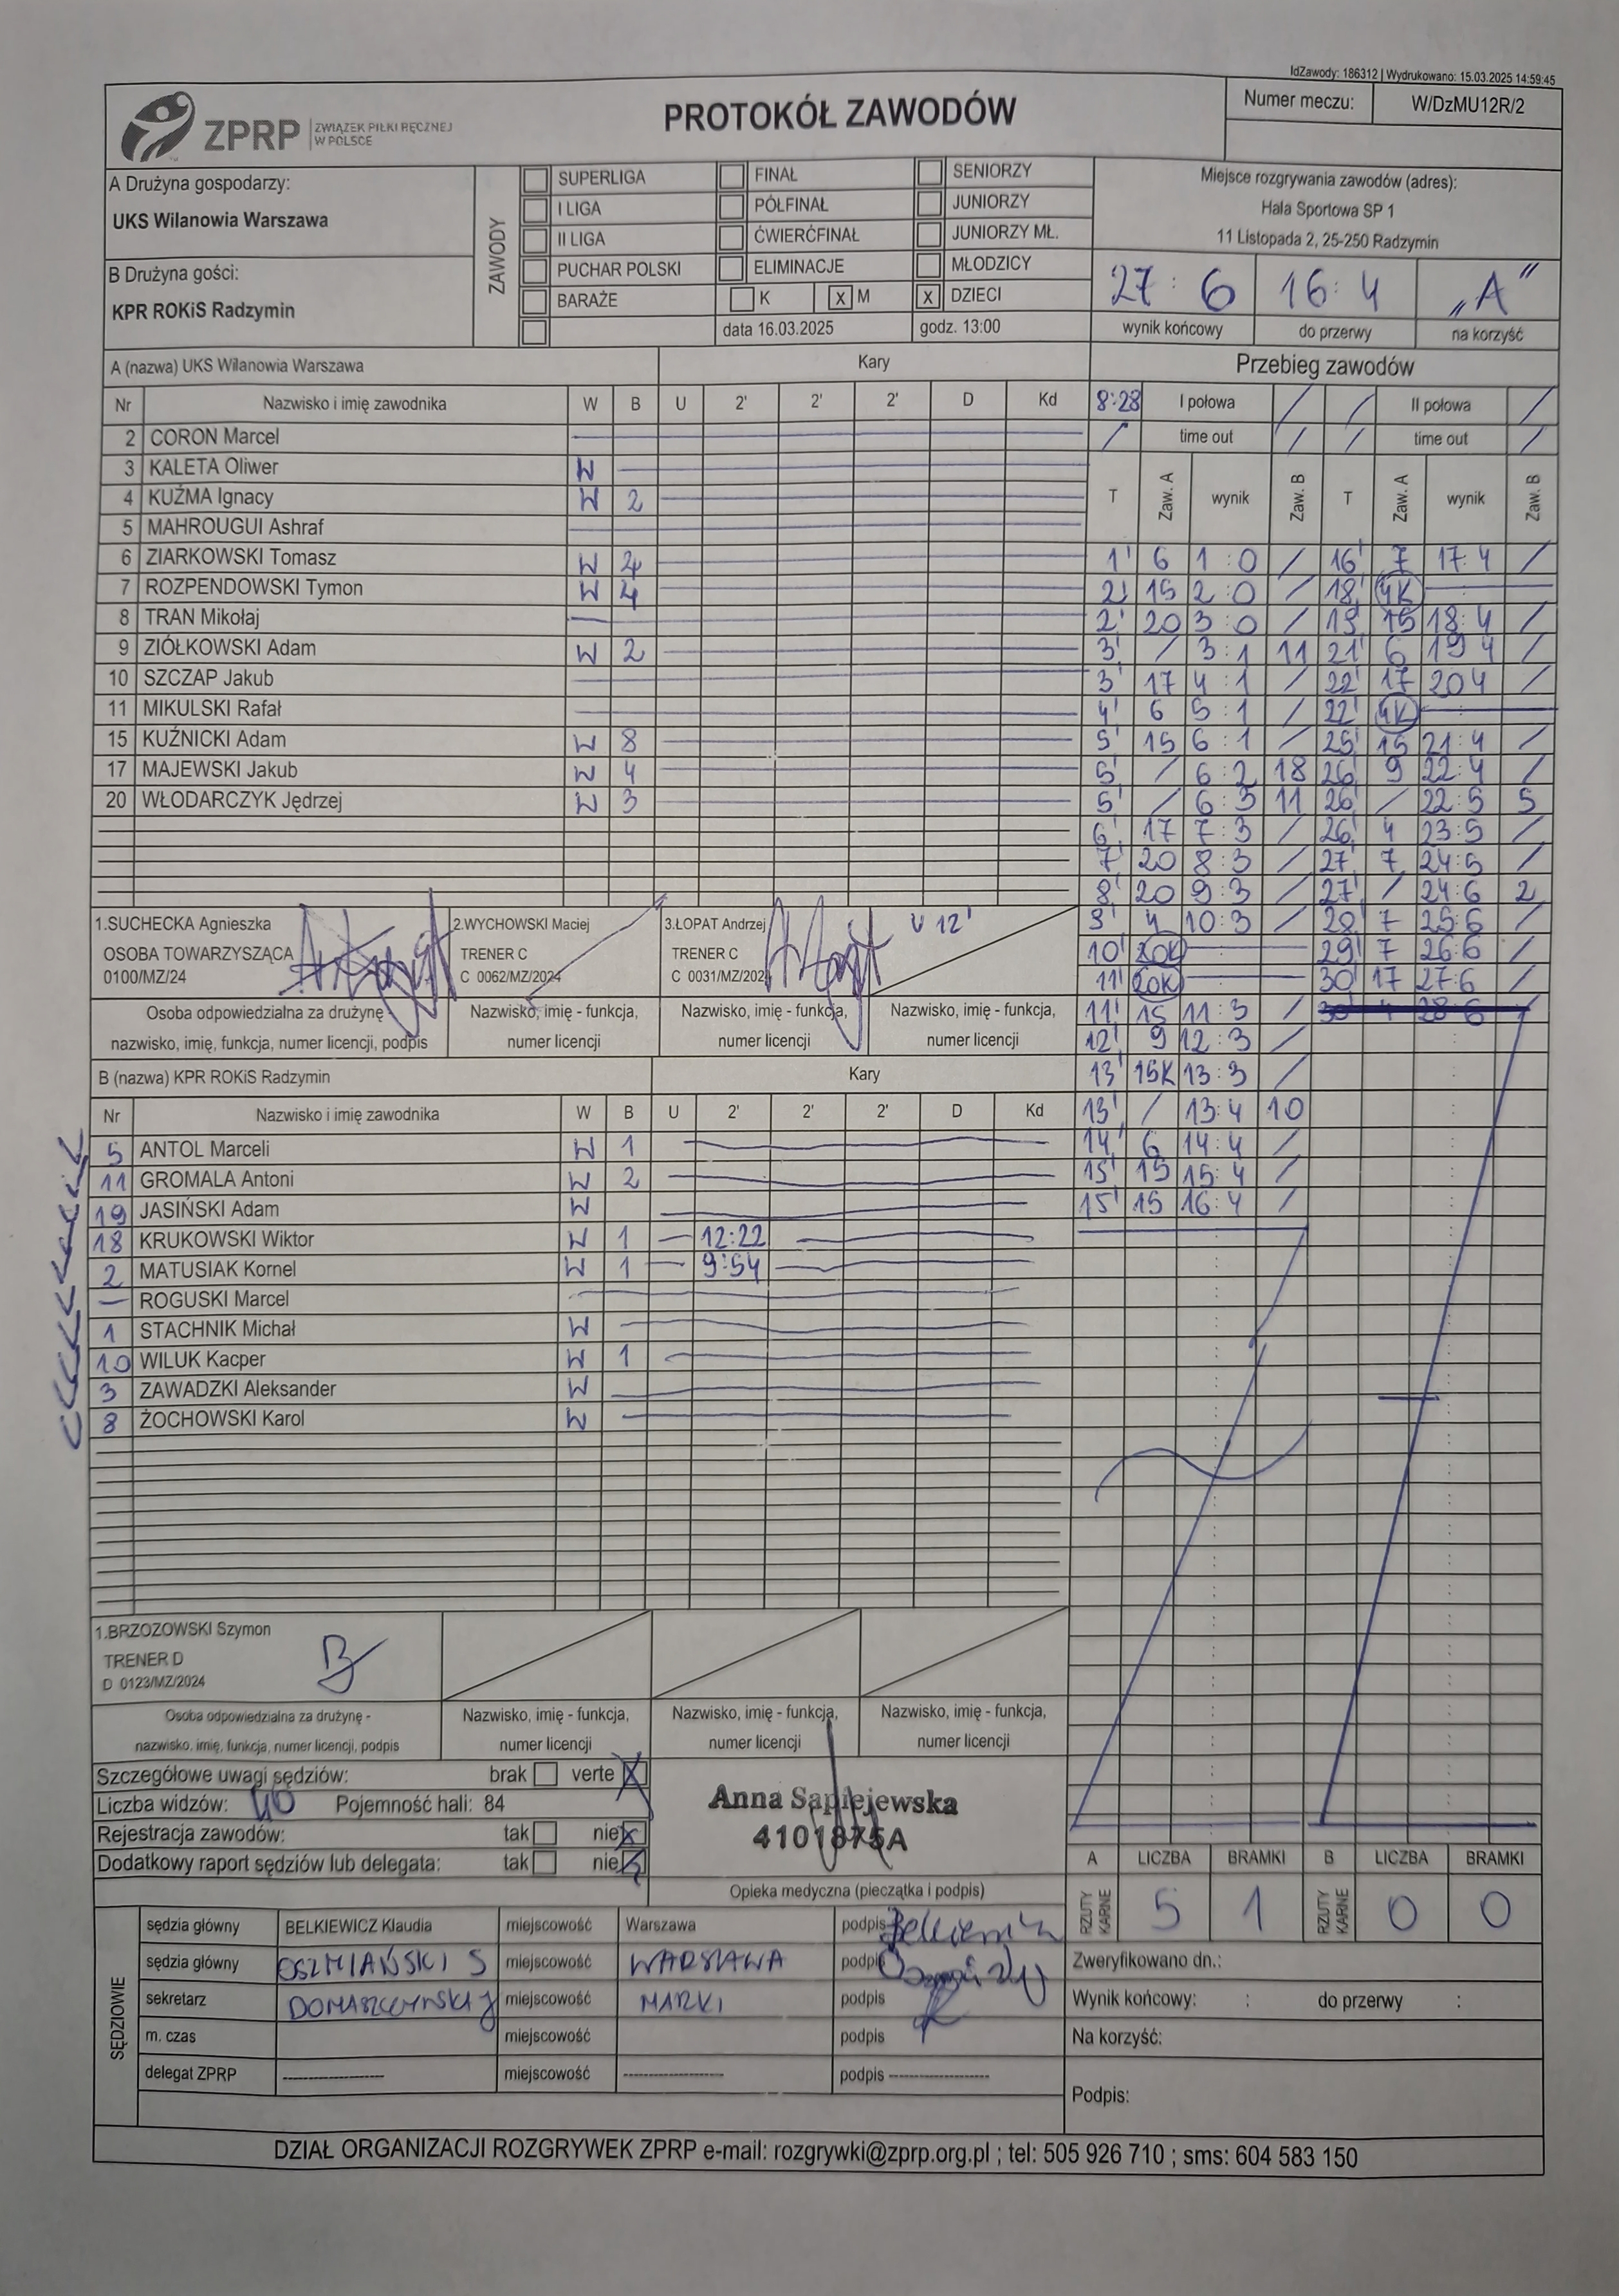 IdZawody: 186312 | Wydrukowano: 15.03.2025 14:59:45
ZPRP ZWIĄZEK PIŁKI RĘCZNEJ W POLSCE
PROTOKÓŁ ZAWODÓW
Numer meczu: W/DzMU12R/2
A Drużyna gospodarzy:
UKS Wilanowia Warszawa
B Drużyna gości:
KPR ROKiS Radzymin
ZAWODY
SUPERLIGA FINAŁ SENIORZY
I LIGA PÓŁFINAŁ JUNIORZY
II LIGA ĆWIERĆFINAŁ JUNIORZY MŁ.
PUCHAR POLSKI ELIMINACJE MŁODZICY
BARAŻE K x M x DZIECI
data 16.03.2025 godz. 13:00
Miejsce rozgrywania zawodów (adres):
Hala Sportowa SP 1
11 Listopada 2, 25-250 Radzymin
27 : 6 16 : 4 „A"
wynik końcowy do przerwy na korzyść
A (nazwa) UKS Wilanowia Warszawa Kary
Nr Nazwisko i imię zawodnika W B U 2' 2' 2' D Kd
2 CORON Marcel
3 KALETA Oliwer W
4 KUŹMA Ignacy W 2
5 MAHROUGUI Ashraf
6 ZIARKOWSKI Tomasz W 4
7 ROZPENDOWSKI Tymon W 4
8 TRAN Mikołaj
9 ZIÓŁKOWSKI Adam W 2
10 SZCZAP Jakub
11 MIKULSKI Rafał
15 KUŹNICKI Adam W 8
17 MAJEWSKI Jakub W 4
20 WŁODARCZYK Jędrzej W 3
1.SUCHECKA Agnieszka
OSOBA TOWARZYSZĄCA
0100/MZ/24
2.WYCHOWSKI Maciej
TRENER C
C 0062/MZ/2024
3.ŁOPAT Andrzej
TRENER C
C 0031/MZ/2024
U 12'
Osoba odpowiedzialna za drużynę -
nazwisko, imię, funkcja, numer licencji, podpis
Nazwisko, imię - funkcja,
numer licencji
Nazwisko, imię - funkcja,
numer licencji
Nazwisko, imię - funkcja,
numer licencji
B (nazwa) KPR ROKiS Radzymin Kary
Nr Nazwisko i imię zawodnika W B U 2' 2' 2' D Kd
5 ANTOL Marceli W 1
11 GROMALA Antoni W 2
19 JASIŃSKI Adam W
18 KRUKOWSKI Wiktor W 1 — 12:22
2 MATUSIAK Kornel W 1 — 9:54
— ROGUSKI Marcel
1 STACHNIK Michał W
10 WILUK Kacper W 1
3 ZAWADZKI Aleksander W
8 ŻOCHOWSKI Karol W
1.BRZOZOWSKI Szymon
TRENER D
D 0123/MZ/2024
Osoba odpowiedzialna za drużynę -
nazwisko, imię, funkcja, numer licencji, podpis
Nazwisko, imię - funkcja,
numer licencji
Nazwisko, imię - funkcja,
numer licencji
Nazwisko, imię - funkcja,
numer licencji
Przebieg zawodów
8:28 I połowa / / II połowa /
/ time out / / time out /
T Zaw. A wynik Zaw. B T Zaw. A wynik Zaw. B
1' 6 1 : 0 / 16' 7 17:4 /
2' 15 2 : 0 / 18' 4K
2' 20 3 : 0 / 19' 15 18:4 /
3' / 3 : 1 11 21' 6 19 4 /
3' 17 4 : 1 / 22' 17 20 4 /
4' 6 5 : 1 / 22' 4K
5' 15 6 : 1 / 25' 15 21:4 /
5' / 6 : 2 18 26' 9 22:4 /
5' / 6 : 3 11 26' / 22:5 5
6' 17 7 : 3 / 26' 4 23:5 /
7' 20 8 : 3 / 27' 7 24:5 /
8' 20 9 : 3 / 27' / 24:6 2
9' 4 10 : 3 / 28' 7 25:6 /
10' 20K 29' 7 26:6 /
11' 20K 30' 17 27:6 /
11' 15 11 : 3 / 30' 4 28 6
12' 9 12 : 3 /
13' 15K 13 : 3 /
13' / 13:4 10
14' 6 14:4 /
15' 15 15:4 /
15' 15 16:4 /
Szczegółowe uwagi sędziów: brak verte X
Liczba widzów: 40 Pojemność hali: 84
Rejestracja zawodów: tak nie x
Dodatkowy raport sędziów lub delegata: tak nie x
Anna Sapiejewska
4101875A
Opieka medyczna (pieczątka i podpis)
A LICZBA BRAMKI B LICZBA BRAMKI
RZUTY KARNE 5 1 RZUTY KARNE 0 0
SĘDZIOWIE
sędzia główny BELKIEWICZ Klaudia miejscowość Warszawa podpis
sędzia główny OSZMIAŃSKI S miejscowość WARSZAWA podpis
sekretarz DOMASZCZYŃSKI J miejscowość MARKI podpis
m. czas miejscowość podpis
delegat ZPRP -------------------- miejscowość -------------------- podpis --------------------
Zweryfikowano dn.:
Wynik końcowy: : do przerwy :
Na korzyść:
Podpis:
DZIAŁ ORGANIZACJI ROZGRYWEK ZPRP e-mail: rozgrywki@zprp.org.pl ; tel: 505 926 710 ; sms: 604 583 150